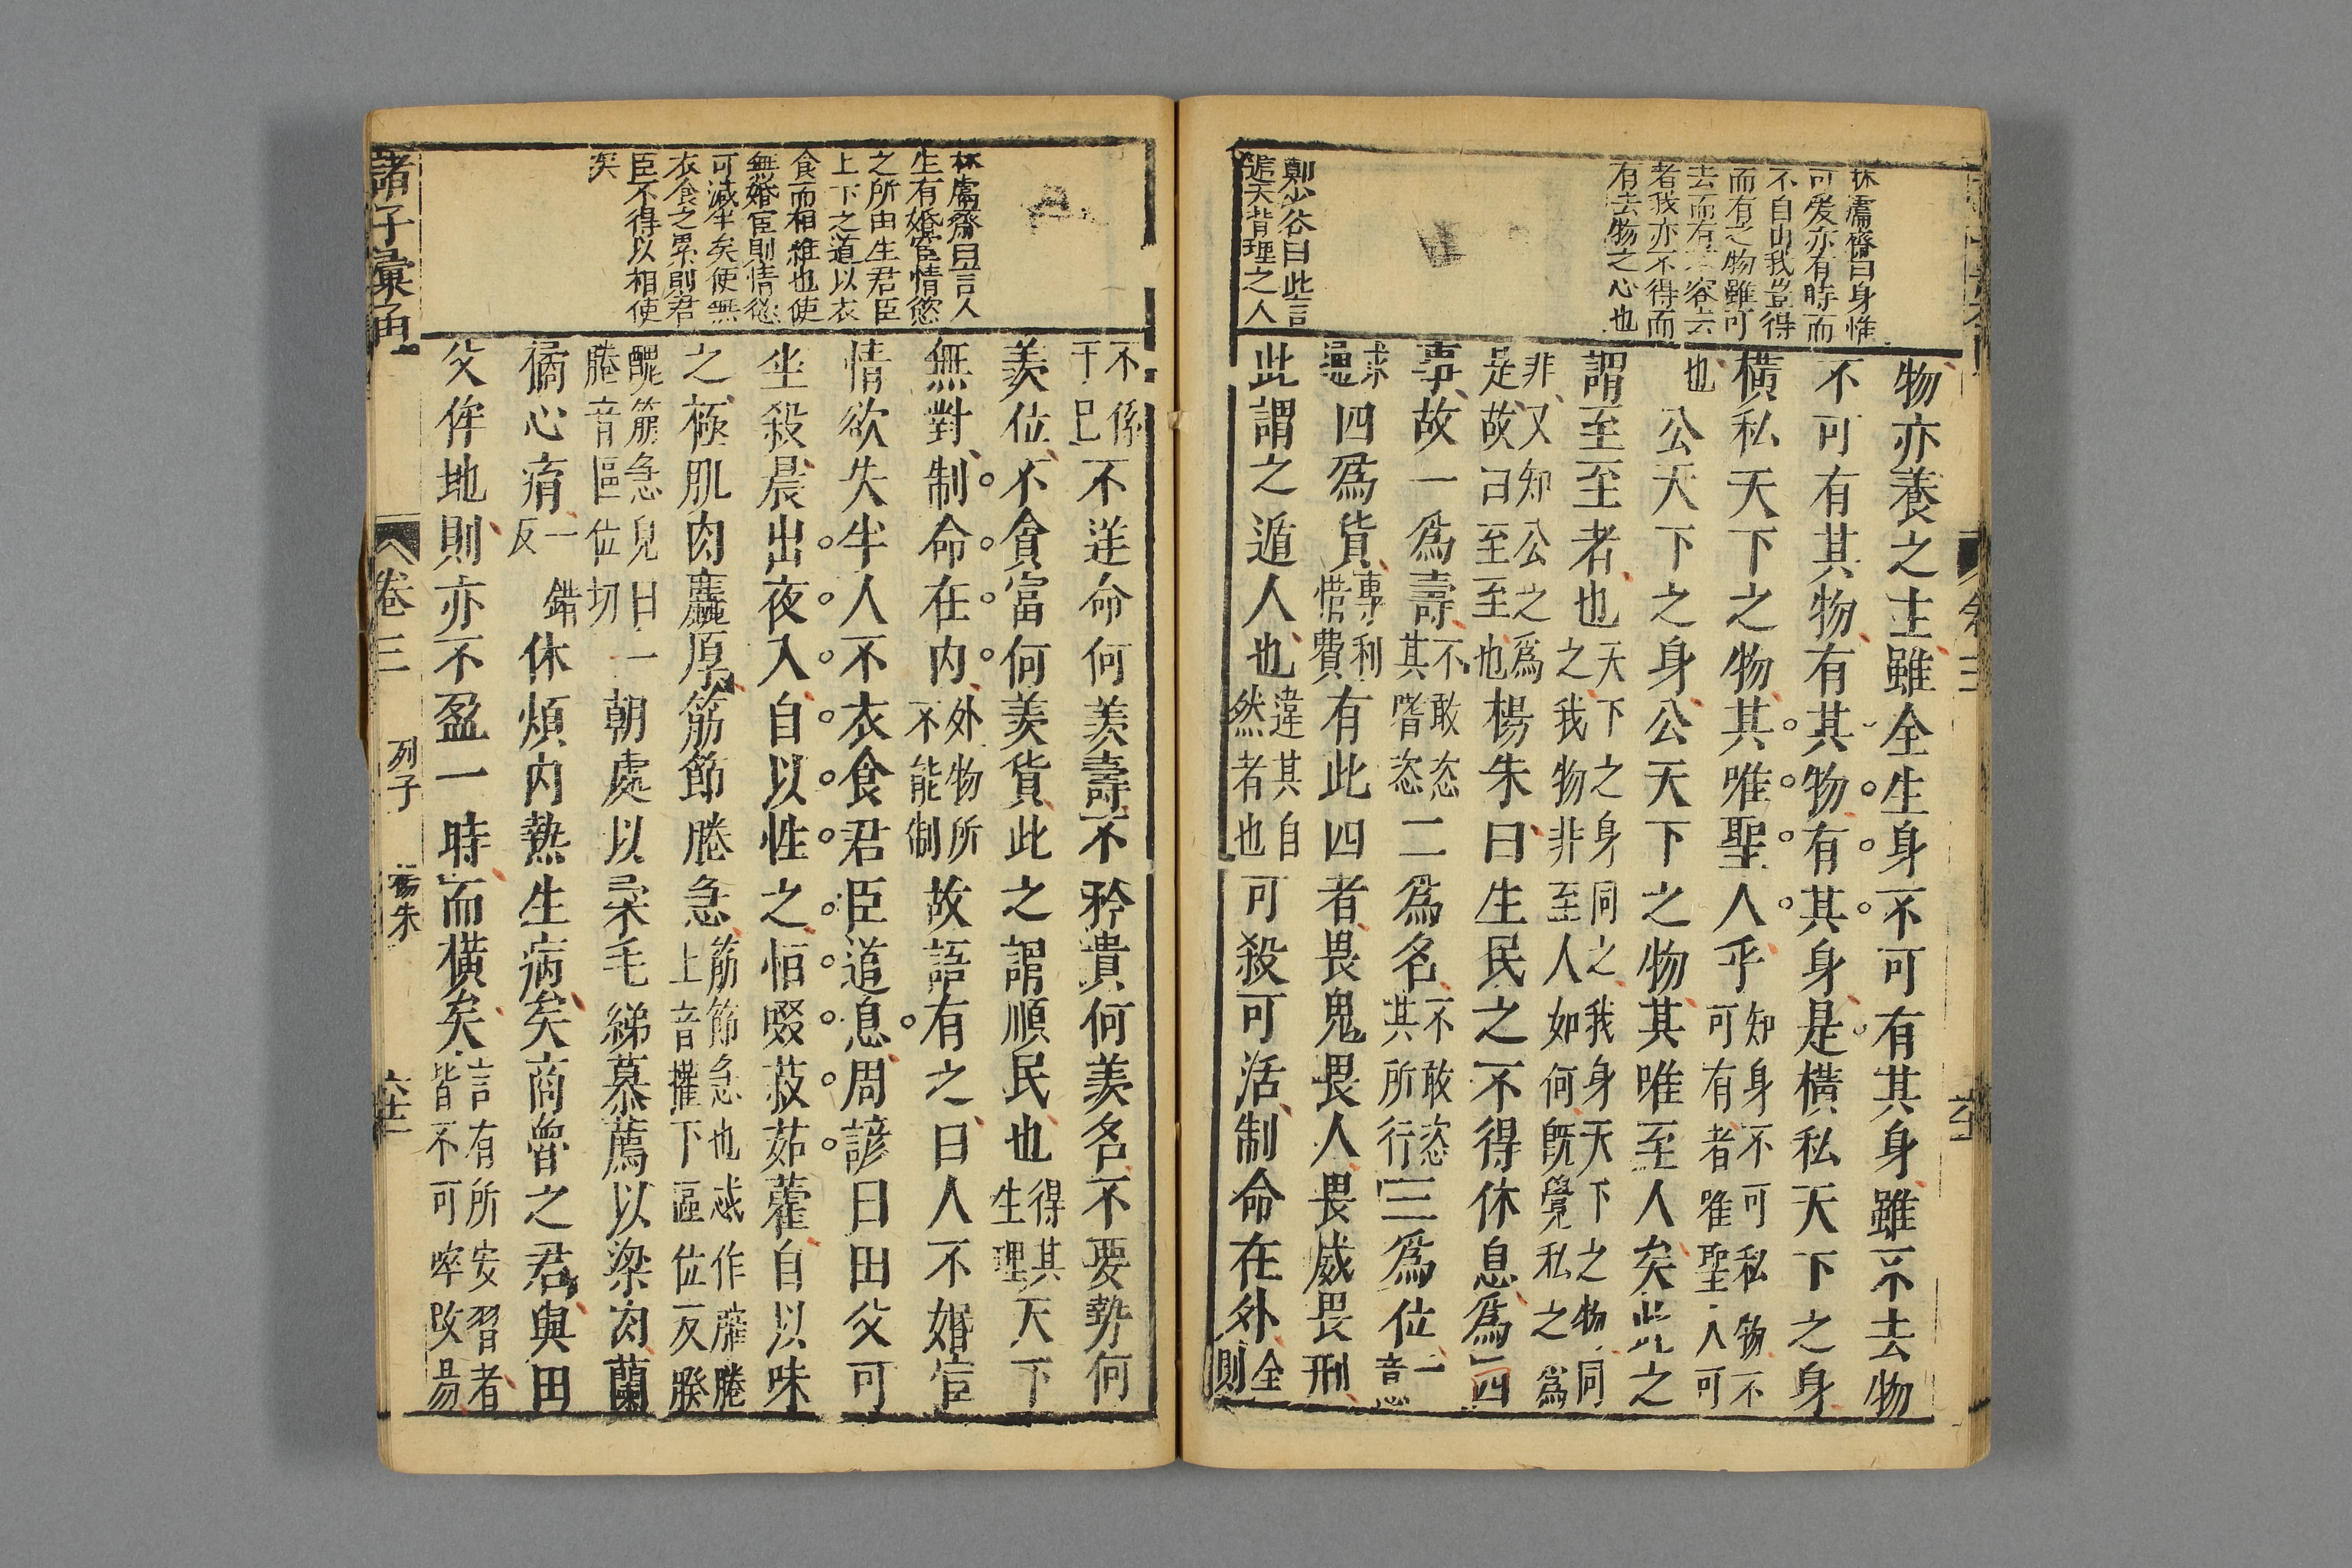 林鬳齋曰身惟
可愛亦有時而
不自由我豈得
而有之物雖可
去而有不容去
者我亦不得而
有去物之心也
鄭少谷曰此言
逆天背理之人
物亦養之主雖全生身不可有其身雖不去物
不可有其物有其物有其身是橫私天下之身
橫私天下之物其唯聖人乎知身不可私物不可有者唯聖人可
也公天下之身公天下之物其唯至人矣此之
謂至至者也天下之身同之我身天下之物同之我物非至人如何既覺私之爲
非又知公之爲是故曰至至也楊朱曰生民之不得休息爲四
事故一爲壽不敢恣其嗜恣二爲名不敢恣其所行三爲位一意
求通四爲貨專利惜費有此四者畏鬼畏人畏威畏刑
此謂之遁人也違其自然者也可殺可活制命在外全則
不係于己不逆命何羨壽不矜貴何羨名不要勢何
羨位不貪富何羨貨此之謂順民也得其生理天下
無對制命在內外物所不能制故語有之曰人不婚宦
情欲失半人不衣食君臣道息周諺曰田父可
坐殺晨出夜入自以性之恒啜菽茹藿自以味
之極肌肉麤厚筋節腃急筋節急也或作㢡腃上音權下區位反腃
醜筋急皃腃音區位切曰一朝處以柔毛綈幕薦以粱肉蘭
橘心㾓一錯反休煩內熱生病矣商魯之君與田
父侔地則亦不盈一時而橫矣言有所安習者皆不可卒改易
林鬳齋曰言人
生有婚宦情慾
之所由生君臣
上下之道以衣
食而相維也使
無婚宦則情慾
可減半矣使無
衣食之累則君
臣不得以相使
矣
諸子彙函
卷三
列子
楊朱